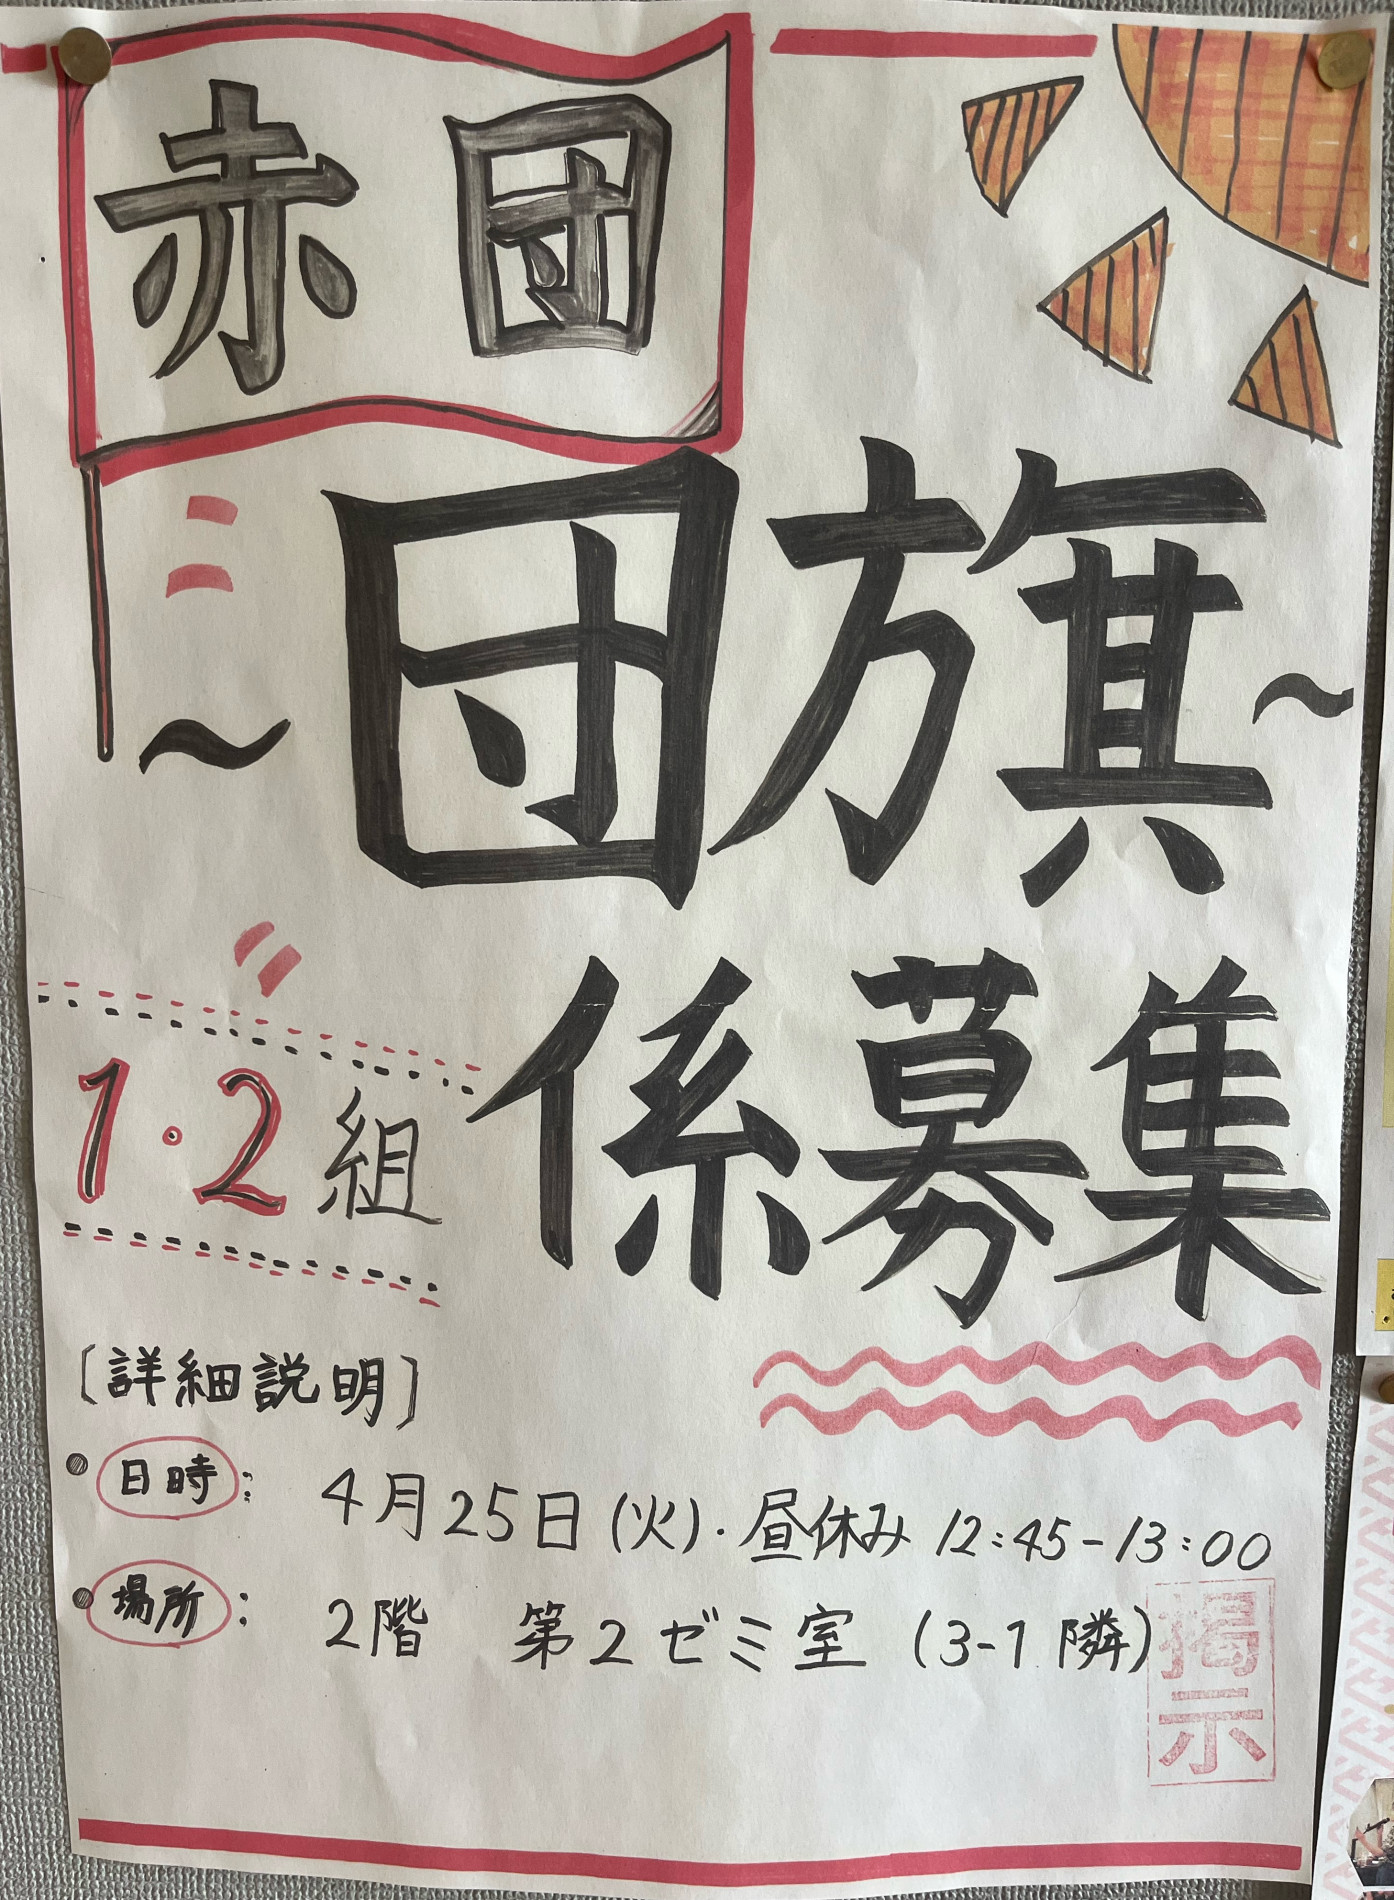 赤団
～団旗～
係募集
1・2組
〔詳細説明〕
日時: 4月25日(火)・昼休み 12:45-13:00
場所: 2階 第2ゼミ室 (3-1 隣)
掲示